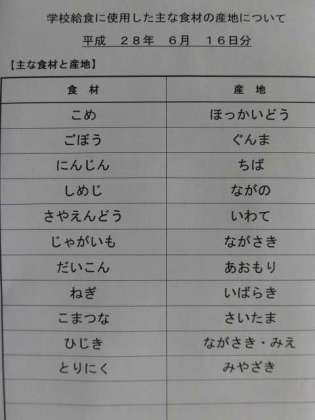 学校給食に使用した主な食材の産地について
平成 28年 6月 16日分
【主な食材と産地】
食 材 産 地
こめ ほっかいどう
ごぼう ぐんま
にんじん ちば
しめじ ながの
さやえんどう いわて
じゃがいも ながさき
だいこん あおもり
ねぎ いばらき
こまつな さいたま
ひじき ながさき・みえ
とりにく みやざき